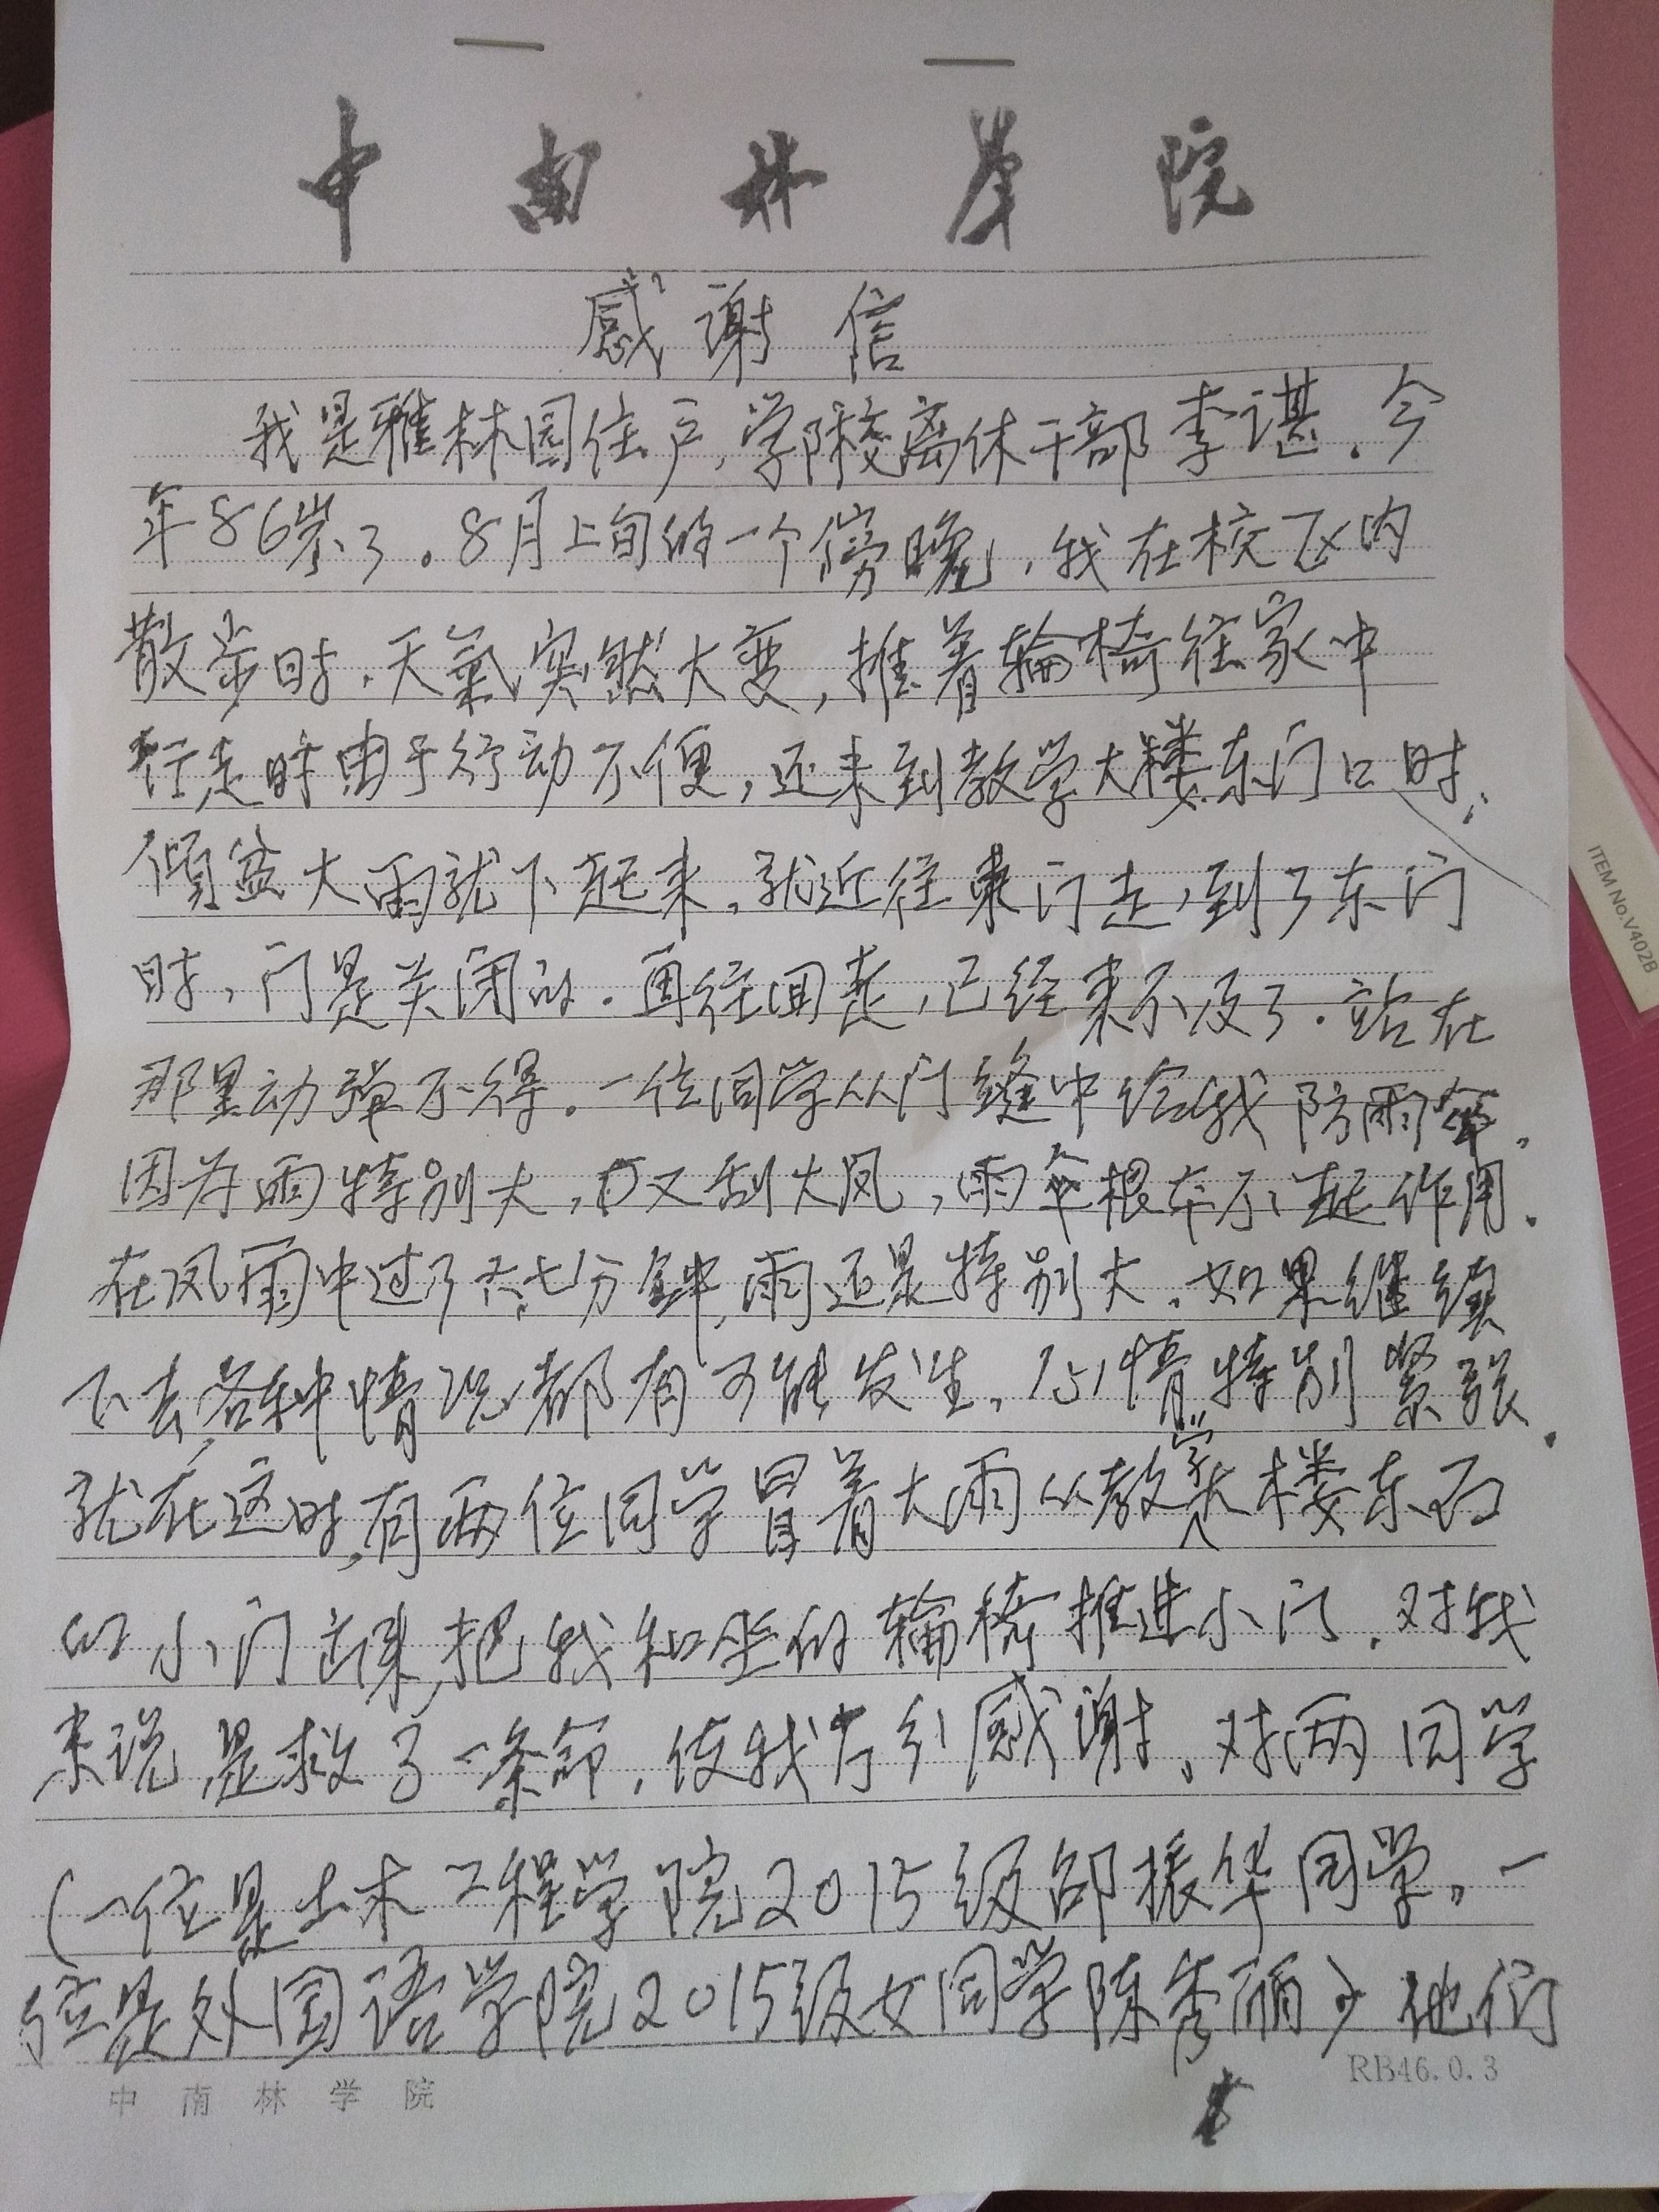 中南林学院
感谢信
我是雅林园住户,学院离休干部李谌.今
年86岁了。8月上旬的一个傍晚,我在校区内
散步时.天氣突然大变,推着輪椅往家中
行走时由于行动不便,还未到教学大楼东门口时,
倾盆大雨就下起来.就近往东门走,到了东门
时,门是关闭的.再往回走,已经来不及了.站在
那里动弹不得。一位同学从门缝中给我防雨伞.
因为雨特别大,又刮大风,雨伞根本不起作用.
在风雨中过了六七分钟,雨还是特别大.如果继续
下去,各种情况都有可能发生.心情特别紧张.
就在这时,有两位同学冒着大雨从教学大楼东面
的小门出来,把我和坐的輪椅推进小门.对我
来说是救了一条命.使我万分感谢.对两同学
(一位是土木工程学院2015级邵振华同学。一
位是外国语学院2015级女同学陈秀丽)他们
中南林学院
RB46.0.3
ITEM No.V402B